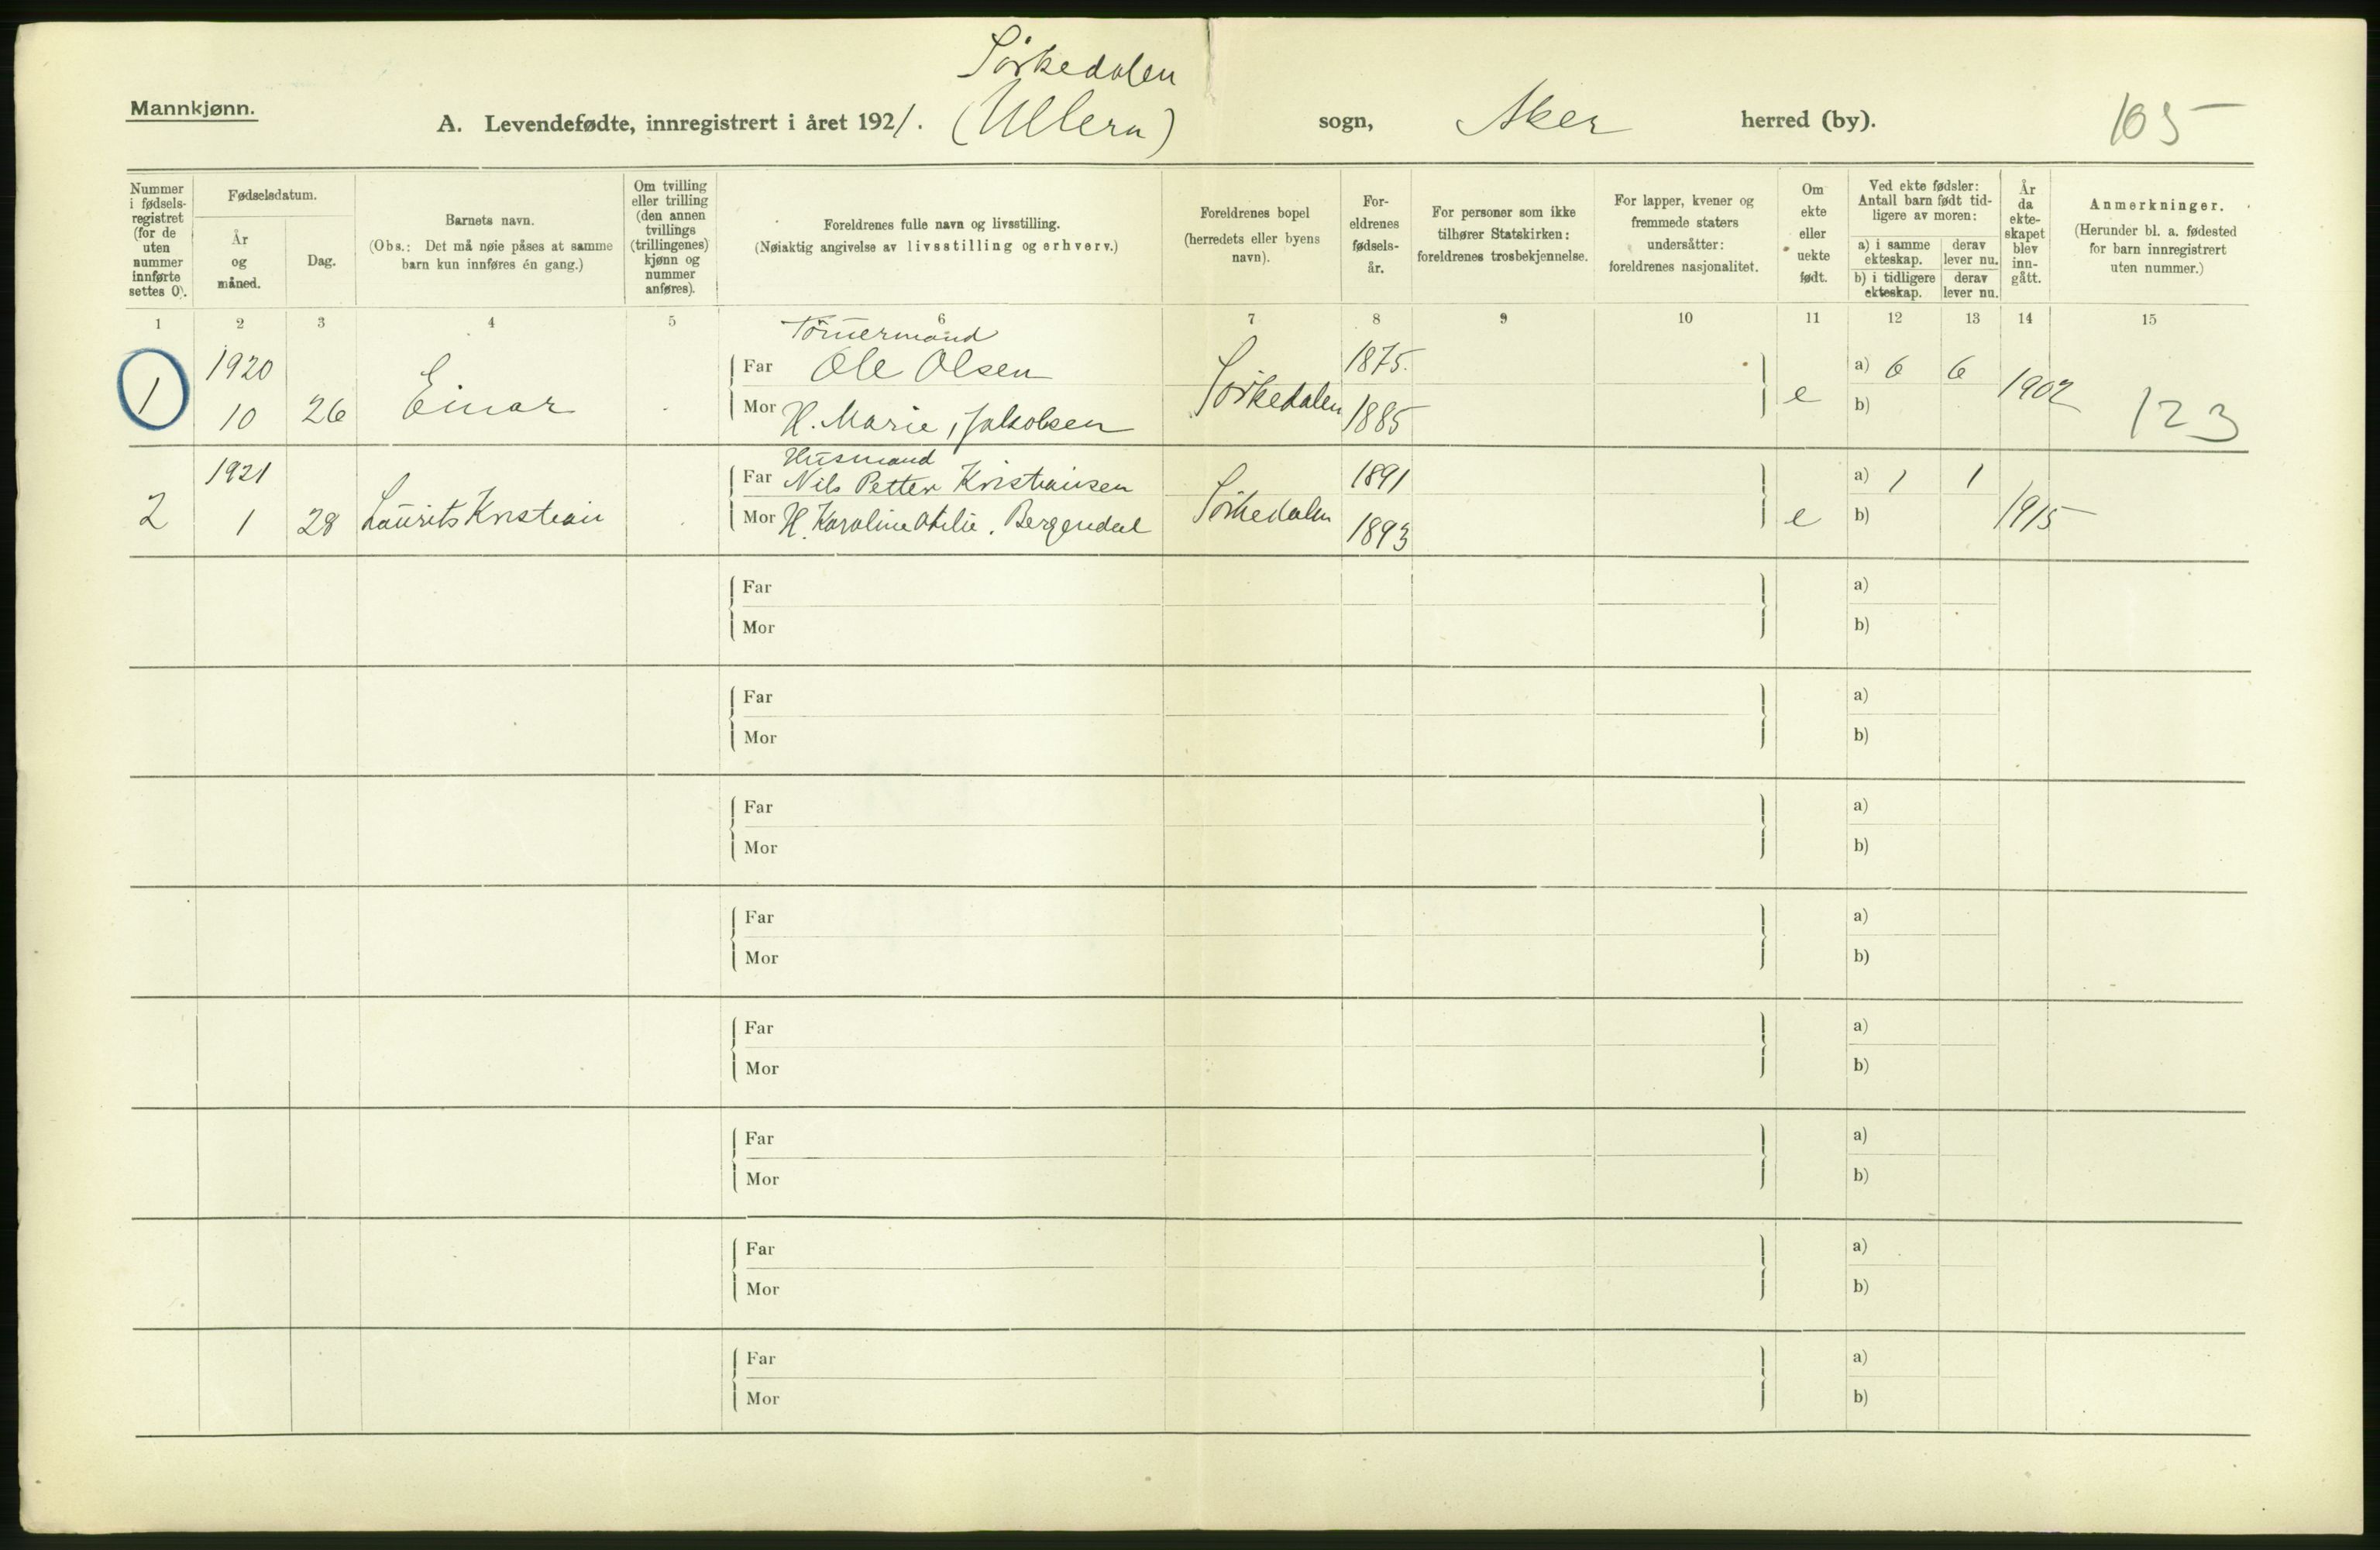 Mannkjønn.
Sørkedalen
A. Levendefødte, innregistrert i året 1921. (Ullern) sogn, Aker herred (by). 105
Nummer i fødsels-registret (for de uten nummer innførte settes 0).
Fødselsdatum.
År og måned.
Dag.
Barnets navn.
(Obs.: Det må nøie påses at samme barn kun innføres én gang.)
Om tvilling eller trilling (den annen tvillings (trillingenes) kjønn og nummer anføres).
Foreldrenes fulle navn og livsstilling.
(Nøiaktig angivelse av livsstilling og erhverv.)
Foreldrenes bopel (herredets eller byens navn).
For-eldrenes fødsels-år.
For personer som ikke tilhører Statskirken: foreldrenes trosbekjennelse.
For lapper, kvener og fremmede staters undersåtter: foreldrenes nasjonalitet.
Om ekte eller uekte født.
Ved ekte fødsler: Antall barn født tid-ligere av moren:
a) i samme ekteskap. derav lever nu.
b) i tidligere ekteskap. derav lever nu.
År da ekte-skapet blev inn-gått.
Anmerkninger.
(Herunder bl. a. fødested for barn innregistrert uten nummer.)
1 2 3 4 5 6 7 8 9 10 11 12 13 14 15
Tömermand
1920 Far Ole Olsen 1875. a) 6 6
1 10 26 Einar Mor H. Marie, Jakobsen Sörkedalen 1885 e b) 1902 123
Husmand
1921 Far Nils Petter Kristiansen 1891 a) 1 1
2 1 28 Laurits Kristian Mor H. Karoline Otilie. Bergendal Sörkedalen 1893 e b) 1915
Far a)
Mor b)
Far a)
Mor b)
Far a)
Mor b)
Far a)
Mor b)
Far a)
Mor b)
Far a)
Mor b)
Far a)
Mor b)
Far a)
Mor b)